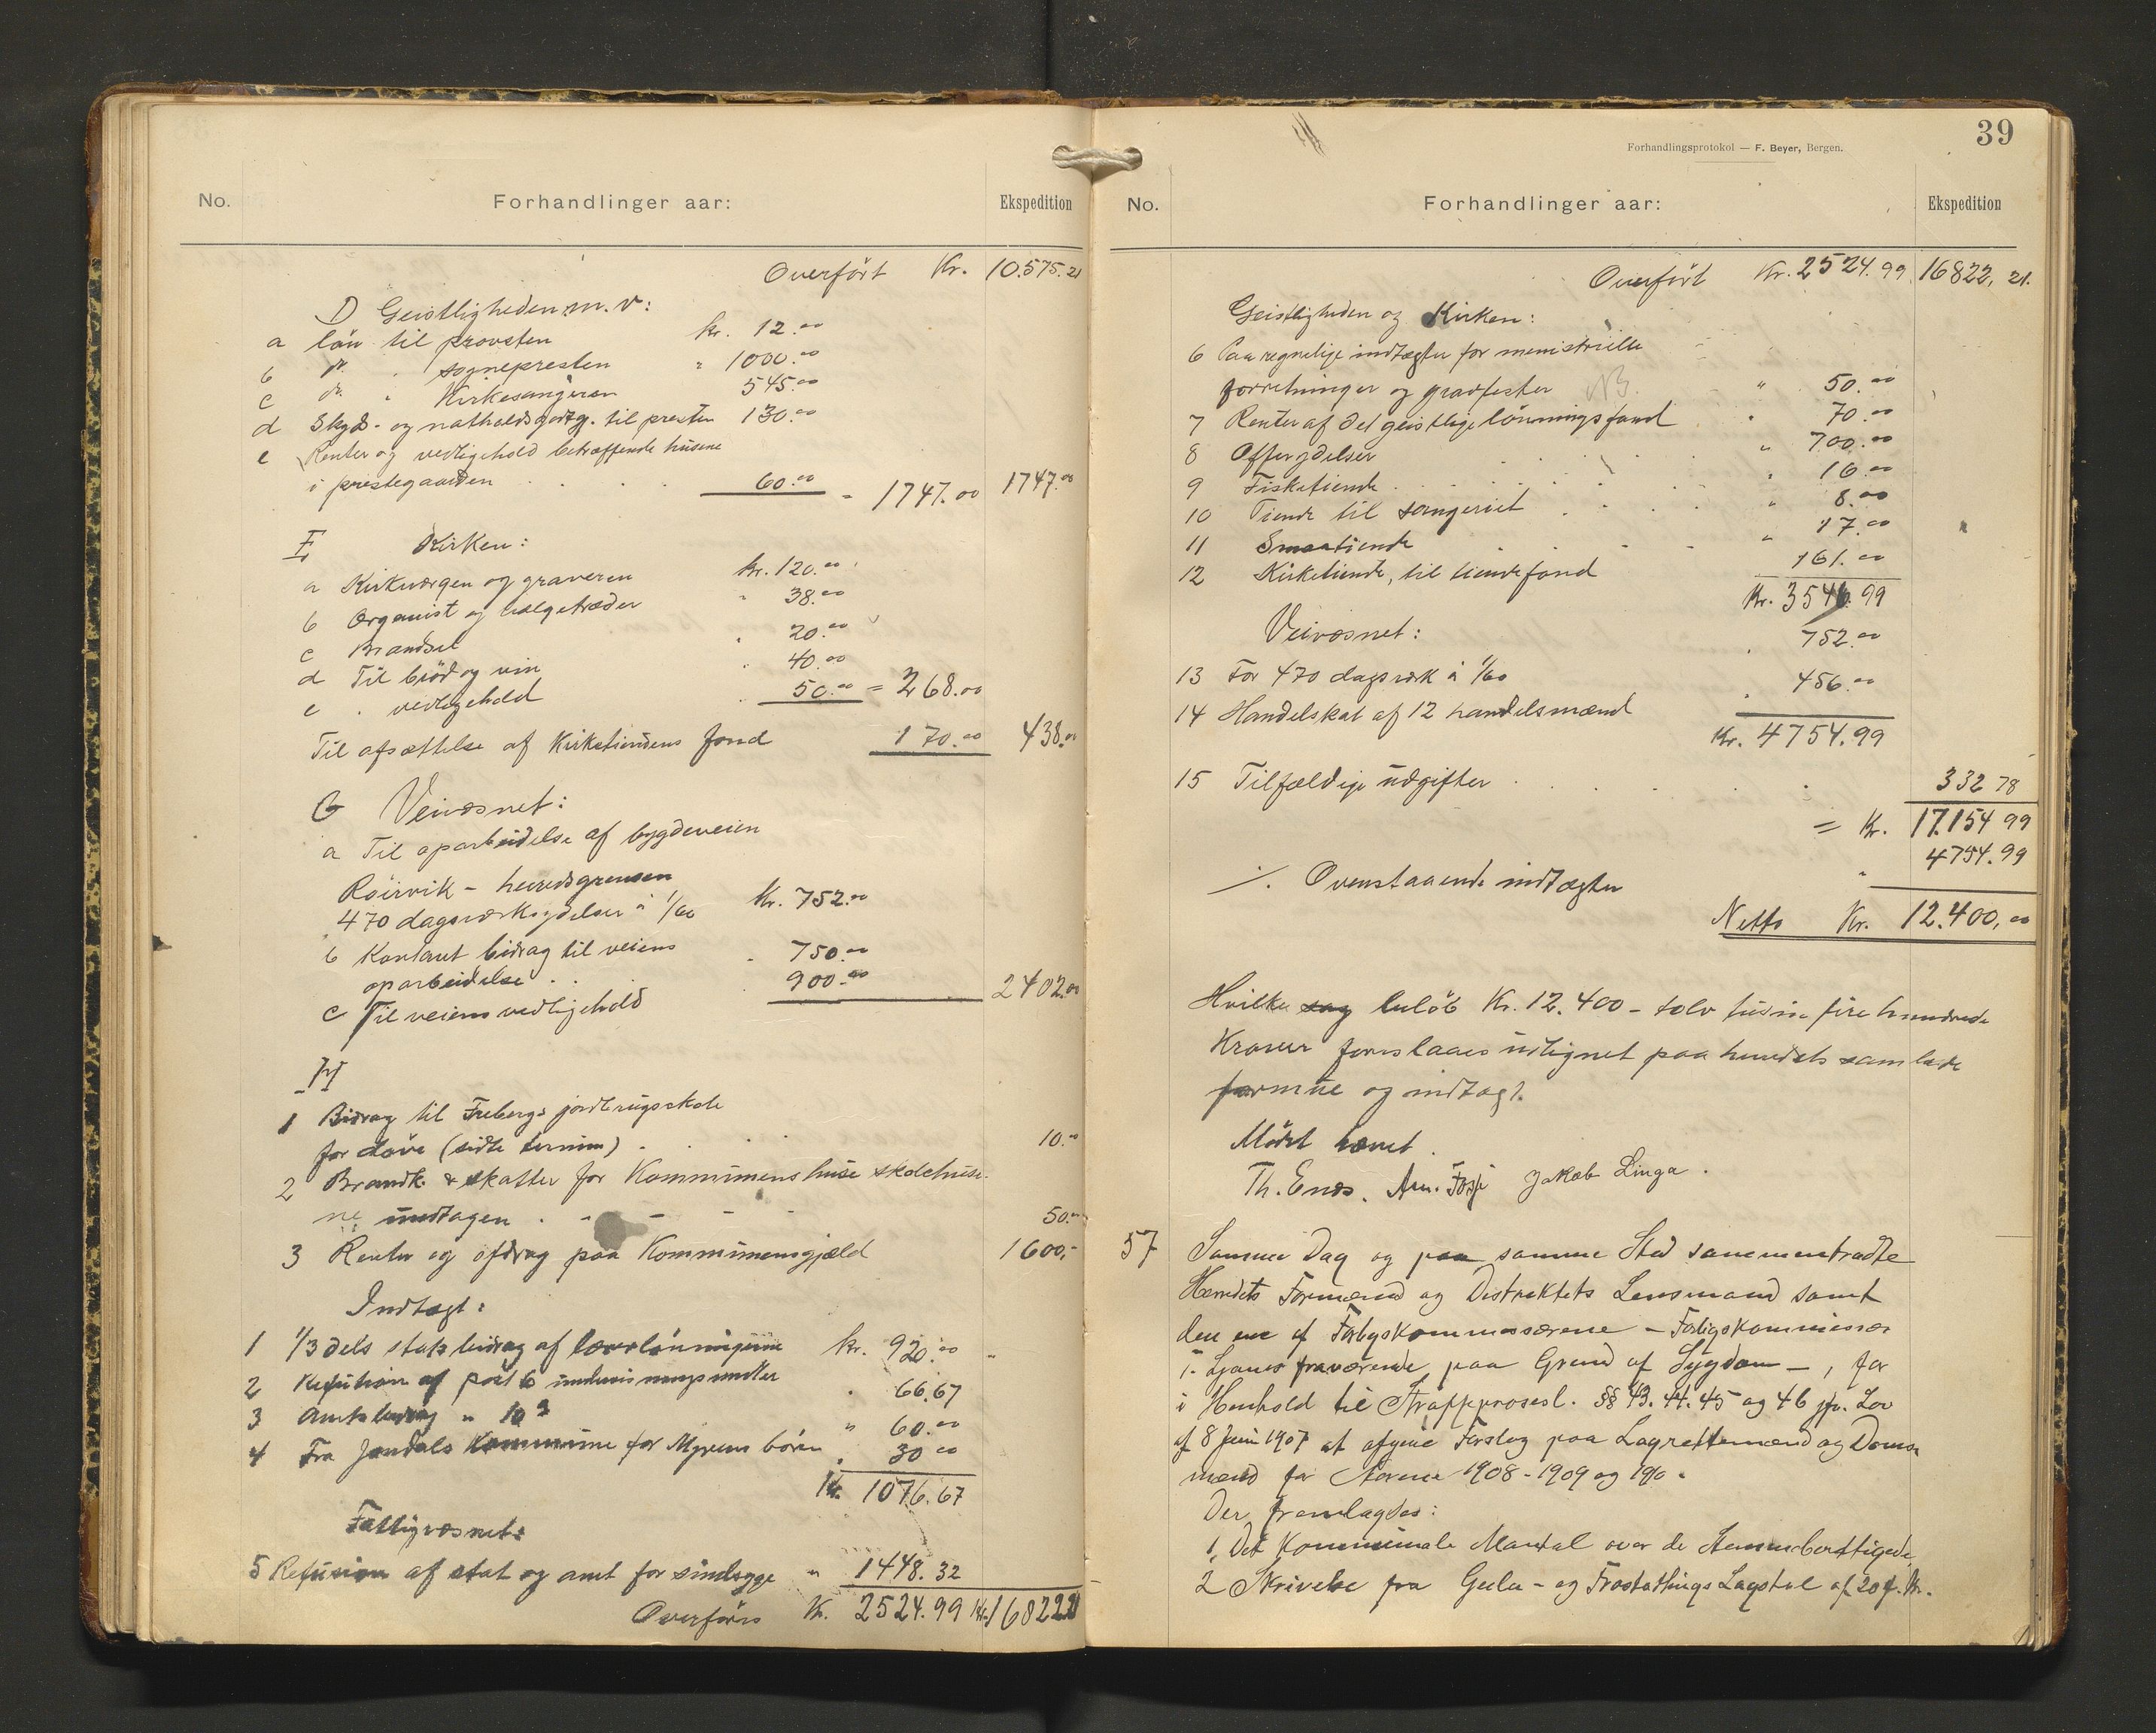 No. Forhandlinger aar: Ekspedition
Overført Kr. 10.575.21
D Geistligheden m. v:
a løn til provsten kr. 12.00
b do. " sognepresten " 1000.00
c do. " Kirkesangeren 545.00
d Skyds- og nattholdsgodtg. til presten 130.00
e Renter og vedligehold betræffende husene
i prestegaarden 60.00 = 1747.00 1747.00
F Kirken:
a Kirkværgen og graveren kr. 120.00
b Organist og bælgetræder " 38.00
c Brændsel " 20.00
d Til brød og vin " 40.00
e " vedligehold " 50.00 = 268.00
Til afsættelse af Kirketiendens fond 170.00 438.00
G Veivæsnet:
a Til oparbeidelse af bygdeveien
Røirvik - herredsgrensen
470 dagsværksydelser à 1/60 Kr. 752.00
b Kontant bidrag til veiens
oparbeidelse 750.00
c Til veiens vedligehold 900.00 2402.00
H
1 Bidrag til Frebergs jordbrugsskole
for døve (sidte termin) 10.00
2 Brandk. & skatter for Kommunens huse skolehuse-
ne undtagen 50.00
3 Renter og afdrag paa Kommunensgjæld 1600,-
Indtægt:
1 1/3 dels statsbidrag af lærerlønningerne kr. 920.00
2 Refution af post 6 undervisningsmidler " 66.67
3 Amtsbidrag " 10 " 60.00
4 Fra Jondals Kommune for Myrens børn " 30 00
Kr. 1076.67
Fattigvæsnet:
5 Refusion af stat og amt for sindsyge " 1448.32
Overføres Kr. 2524.99 Kr. 16822.21
39
Forhandlingsprotokol — F. Beyer, Bergen.
No. Forhandlinger aar: Ekspedition
Overført Kr. 2524.99 16822,21.
Geistligheden og Kirken:
6 Paaregnelige indtægter for menistrielle
forretninger og gravfester NB. " 50.00
7 Renter af det geistlige lønningsfond " 70.00
8 Offerydelser " 700.00
9 Fisketiende " 16.00
10 Tiende til sangeriet " 8.00
11 Smaatiende " 17.00
12 Kirketiende, til tiendefond 161.00
Kr. 3546.99
Veivæsnet:
13 For 470 dagsværk à 1/60 " 752.00
14 Handelskat af 12 handelsmænd " 456.00
Kr. 4754.99
15 Tilfældige udgifter 332 78
= Kr. 17.154 99
./. Ovenstaaende indtægter " 4754.99
Netto Kr. 12.400,00
Hvilke sag beløb Kr. 12.400 - tolv tusine fire hundrede
Kroner foreslaaes utlignet paa herredets samlede
formue og indtægt.
Mødet hævet.
Th. Enes. Arn. Fosse Jakob Linga.
57 Samme Dag og paa samme Sted sammentraadte
Herredets Formænd og Distriktets Lensmand samt
den ene af Forligskommissærene - Forligskommissær
T. Ljones fraværende paa Grund af Sygdom -, for
i Henhold til Straffprosesl. §§ 43. 44. 45 og 46 jfr. Lov
af 8 Juni 1907 at afgive Forslag paa Lagrettemænd og Doms-
mænd for Aarene 1908 - 1909 og 1910.
Der fremlagdes:
1, Det Kommunale Mantal over de Stemmeberettigede,
2 Skrivelse fra Gula- og Frostathings Lagstol af 20 f. M.